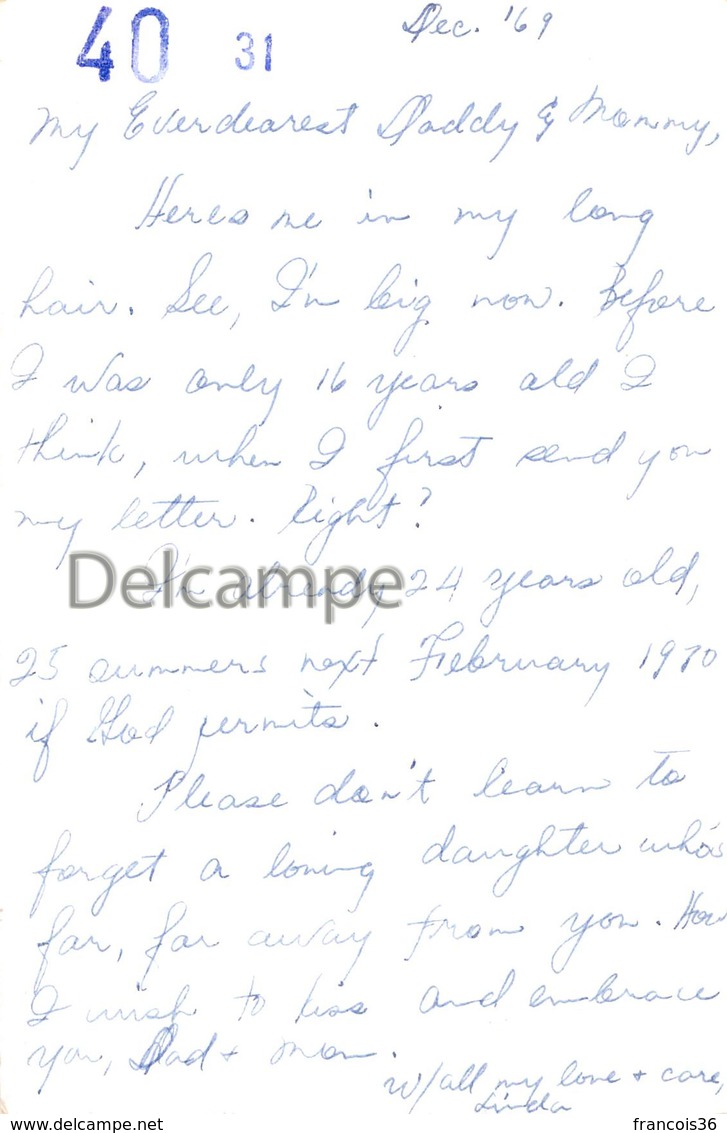 40 31 Dec. '69
My Everdearest Daddy & Mommy,
Heres me in my long
hair. See, I'm big now. Before
I was only 16 years old I
think, when I first send you
my letter. Right?
I'm already 24 years old,
Delcampe
25 summers next February 1970
if God permits.
Please don't learn to
forget a loving daughter who's
far, far away from you. How
I wish to kiss and embrace
you, Dad + Mom.
w/all my love + care,
Linda
www.delcampe.net francois36